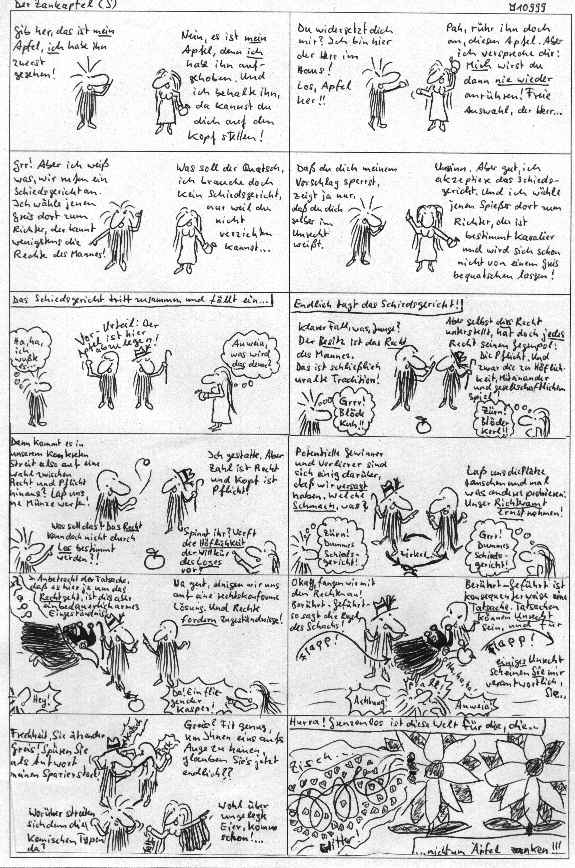 Der Zankapfel (S)
J10999
Gib her, das ist mein
Apfel, ich habe ihn
zuerst
gesehen!
Nein, es ist mein
Apfel, denn ich
habe ihn auf-
gehoben. Und
ich behalte ihn,
da kannst du
dich auf den
Kopf stellen!
Du widersetzt dich
mir? Ich bin hier
der Herr im
Haus!
Los, Apfel
her!!
Pah, rühr ihn doch
an, diesen Apfel. Aber
ich verspreche dir:
Mich wirst du
dann nie wieder
anrühren! Freie
Auswahl, der Herr...
Grr! Aber ich weiß
was, wir rufen ein
Schiedsgericht an.
Ich wähle jenen
Greis dort zum
Richter, der kennt
wenigstens die
Rechte des Mannes!
Was soll der Quatsch,
ich brauche doch
kein Schiedsgericht,
nur weil du
nicht
verzichten
kannst...
Daß du dich meinem
Vorschlag sperrst,
zeigt ja nur,
daß du dich
selber im
Unrecht
weißt.
Unsinn. Aber gut, ich
akzeptiere das Schieds-
gericht. Und ich wähle
jenen Spießer dort zum
Richter, der ist
bestimmt Kavalier
und wird sich schon
nicht von einem Greis
bequatschen lassen!
Das Schiedsgericht tritt zusammen und fällt ein...
Ha, ha,
ich
wußt
Vor-Urteil: Der
Apfel ist hier
abzulegen!
Auweia,
was wird
das denn?
Endlich tagt das Schiedsgericht!!
Klarer Fall, was, Junge?
Der Besitz ist das Recht
des Mannes.
Das ist schließlich
uralt Tradition!
Grrr!
Blöde
Kuh!!
Aber selbst dies Recht
unterstellt, hat doch jedes
Recht seinen Gegenpol:
Die Pflicht. Und
zwar die zu Höflich-
keit, Miteinander
und gesellschaftlichem
Spiel
Zürn!
Blöder
Kerl!!
Dann kommt es in
unserem konkreten
Streit also auf eine
Wahl zwischen
Recht und Pflicht
hinaus? Laß uns
ne Münze werfen!
Ich gestatte. Aber
Zahl ist Recht
und Kopf ist
Pflicht!
Was soll das? Das Recht
kann doch nicht durch
Los bestimmt
werden?!
Spinnt ihr? Verft
die Höflichkeit
der Willkür
des Loses
vor?
Potentielle Gewinner
und Verlierer sind
sich einig darüber,
daß wir versagt
haben. Welche
Schmach, was?
Laß uns die Plätze
tauschen und mal
was anders probieren.
Unser Richteramt
Ernst nehmen!
Zürn!
Dummes
Schieds-
gericht!
Zirkel
Grr!
Dummes
Schieds-
gericht!
In Anbetracht der Tatsache,
daß es hier ja um das
Recht geht, ist dies aber
ein bedauerlich armes
Eingeständnis
Na gut, einigen wir uns
auf eine rechtskonforme
Lösung. Und Rechte
fordern Zugeständnisse!
Hey!
Da! Ein flie-
gender
Kasper!
Okay, fangen wir mit
den Rechten an!
Berührt-Geführt-
so sagt die Regel
des Schachs!
Berührt-Geführt ist
konsequenterweise eine
Tatsache. Tatsachen
können Unrecht
sein, und für
Flapp!
Flapp!
einiges Unrecht
scheinen Sie mir
verantwortlich,
Sie..
Achtung!
Auweia!
Frechheit, Sie ätzender
Greis! Spüren Sie
als Antwort
meinen Spazierstock!
Greis? Fit genug,
um Ihnen eins aufs
Auge zu hauen,
glauben Sie's jetzt
endlich!?
Worüber streiten
sich denn die
komischen Typen
da?
Wohl über
ungelegte
Eier. Komm
schon!...
Hurra! Grenzenlos ist diese Welt für die, die...
Zisch
Glitter
...nicht um Äpfel zanken!!!